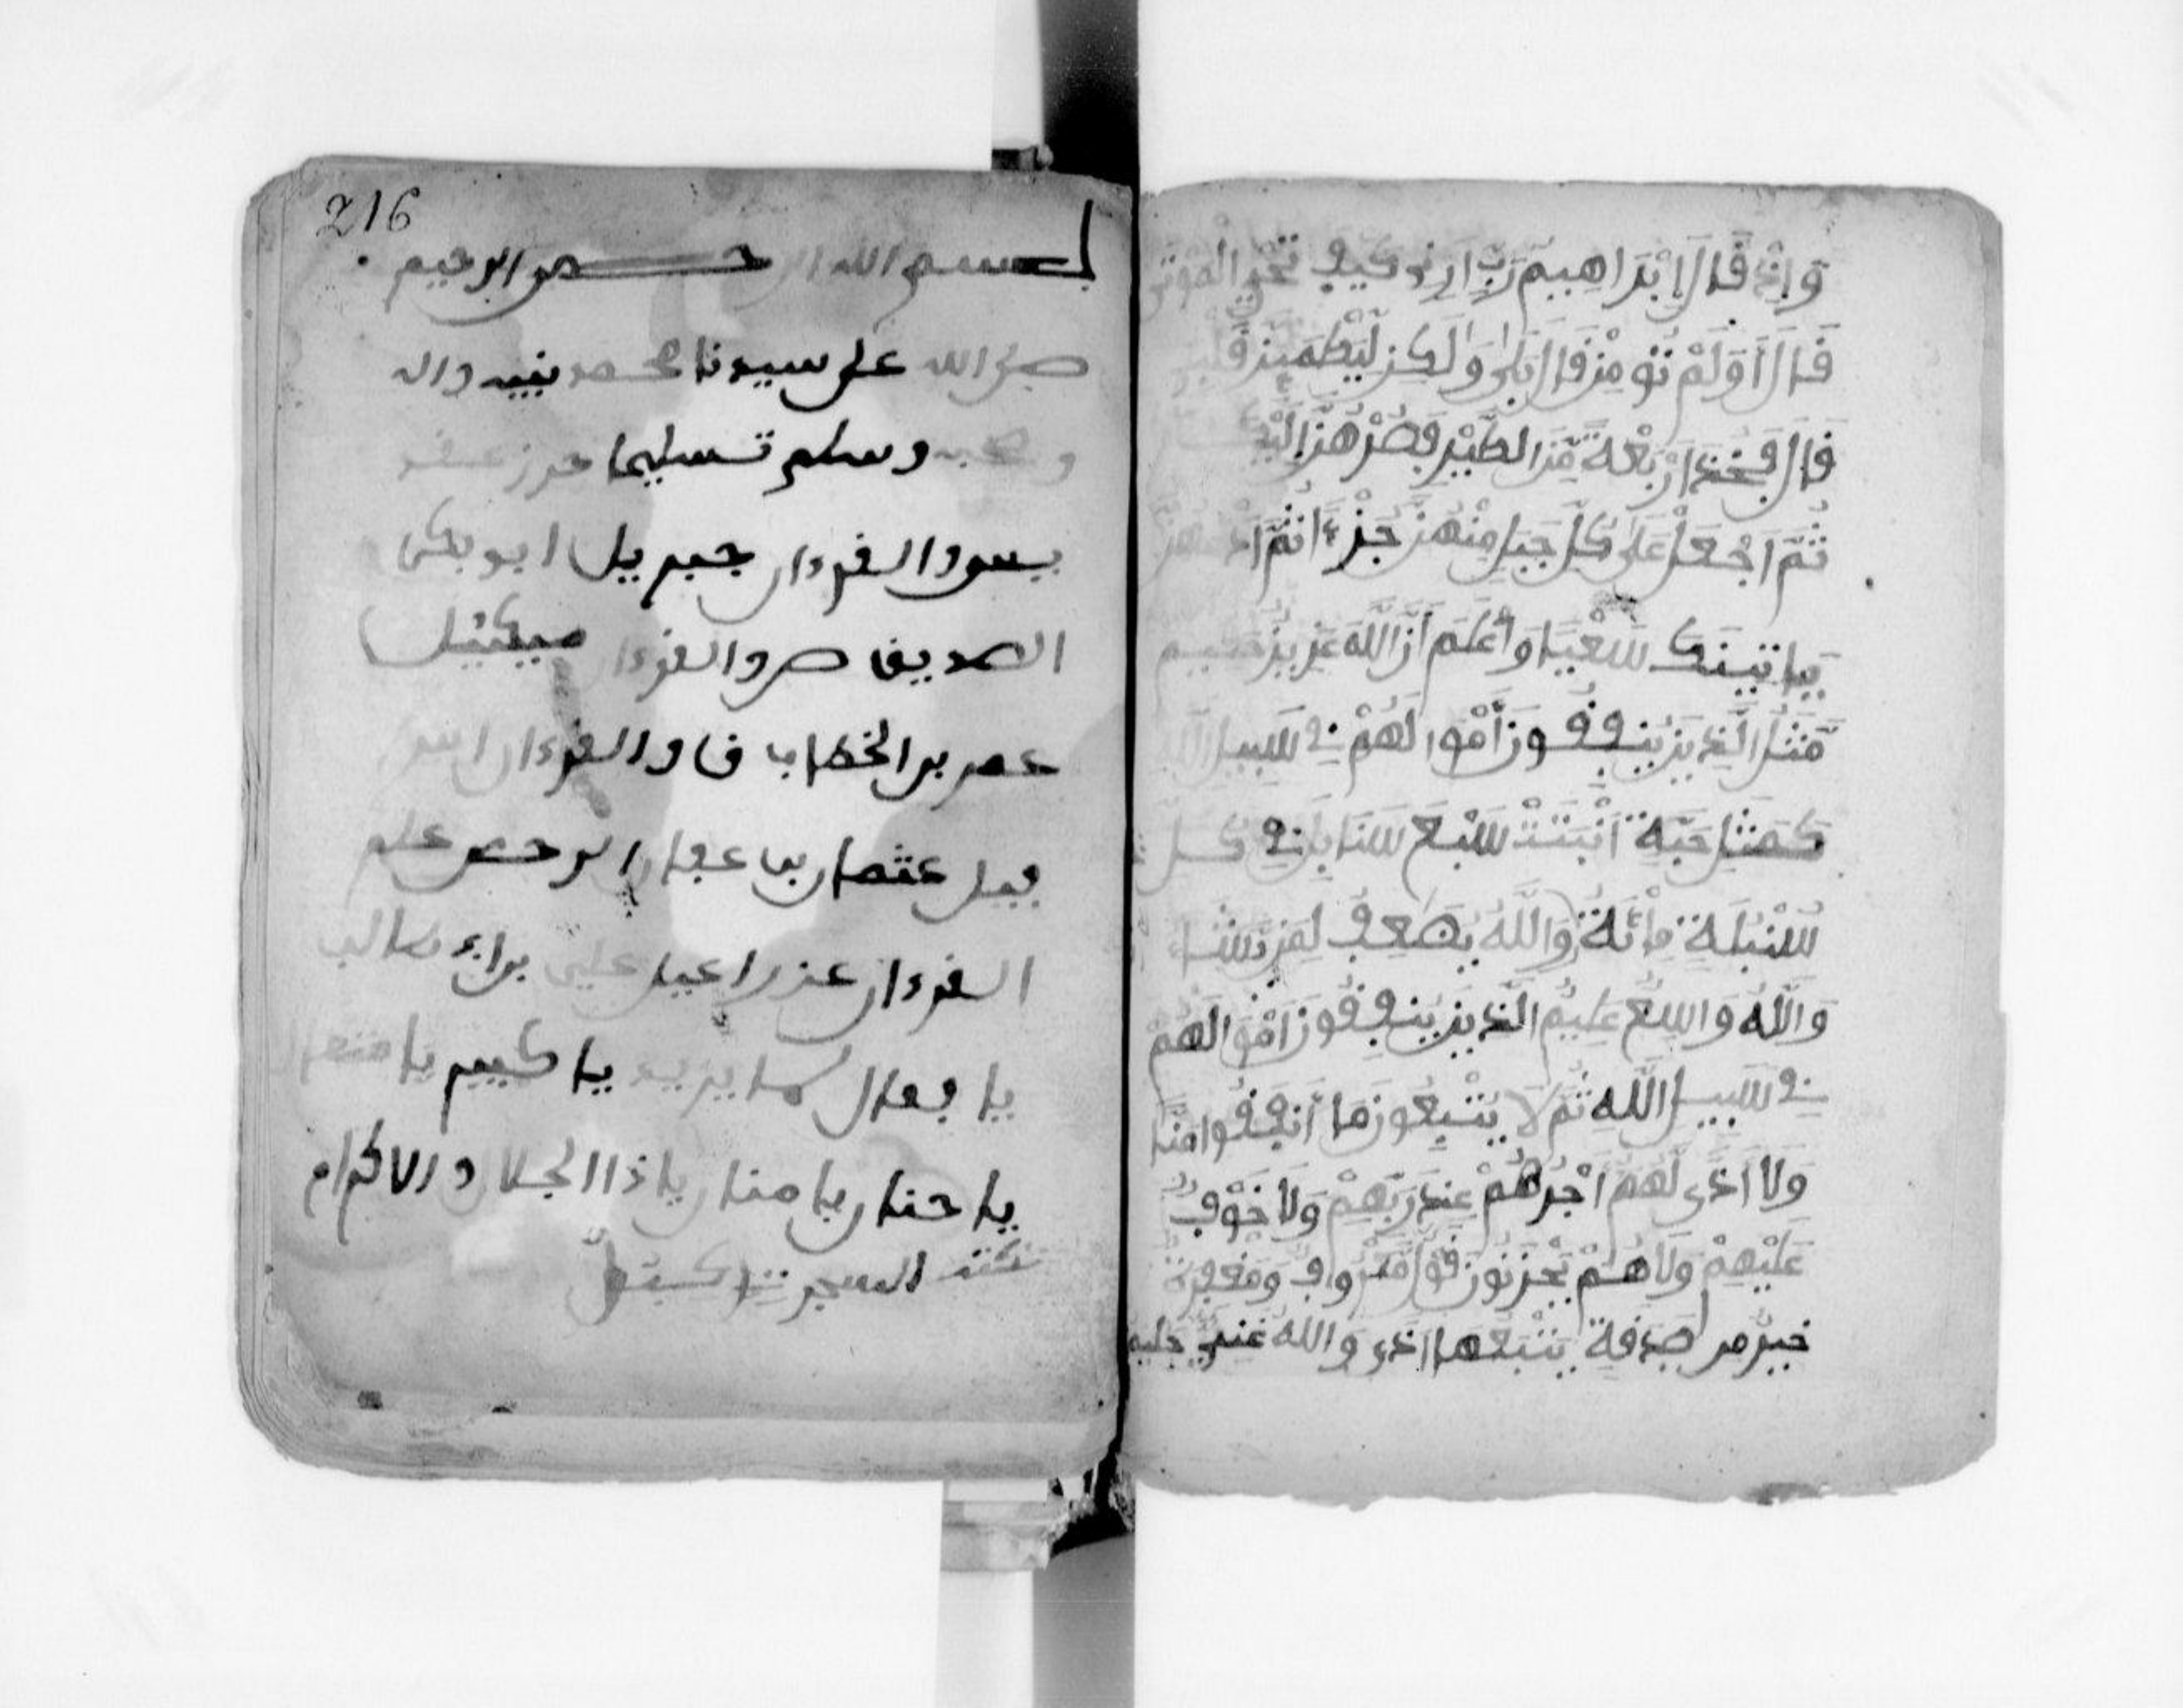 وَإِذْ قَالَ إِبْرَاهِيمُ رَبِّ أَرِنِي كَيْفَ تُحْيِ الْمَوْتَى
قَالَ أَوَلَمْ تُومِن قَالَ بَلَى وَلَكِن لِّيَطْمَئِنَّ قَلْبِي
قَالَ فَخُذَ أَرْبَعَةً مِّنَ الطَّيْرِ فَصُرْهُنَّ إِلَيْكَ
ثُمَّ اَجْعَلْ عَلَى كُلِّ جَبَلٍ مِّنْهُنَّ جُزْءًا ثُمَّ ادْعُهُنَّ
يَاتِينَكَ سَعْيًا وَاعْلَمَ أَنَّ اللَّهَ عَزِيزٌ حَكِيمٌ
مَّثَلُ الَّذِينَ يُنفِقُونَ أَمْوَالَهُمْ فِي سَبِيلِ اللَّهِ
كَمَثَلِ حَبَّةٍ اَنْبَتَتْ سَبْعَ سَنَابِلَ فِي كُلِّ
سُنْبُلَةٍ مِّائَةُ حَبَّةٍ وَاللَّهُ يُضَعِفُ لِمَن يَّشَاءُ
وَاللَّهُ وَاسِعٌ عَلِيمٌ الَّذِينَ يُنفِقُونَ أَمْوَالَهُمْ
فِي سَبِيلِ اللَّهِ ثُمَّ لَا يُتْبِعُونَ مَا أَنفَقُوا مَنًّا
وَلَا أَذًى لَّهُمُ أَجْرُهُمْ عِندَ رَبِّهِمْ وَلَا خَوْفٌ
عَلَيْهِمْ وَلَا هُمْ يَحْزَنُونَ قَوْلٌ مَّعْرُوفٌ وَمَغْفِرَةٌ
خَيْرٌ من صَدَقَةٍ يَتْبَعُهَا أَذًى وَاللَّهُ غَنِيٌّ حَلِيمٌ
216
بسم الله الرحمن الرحيم
صلى الله على سيدنا محمد نبيه واله
وصحبه وسلم تسليما حرز
يس والقرءان جبريل ابو بكر
الصديق ص والقرءان ميكئيل
عمر بن الخطاب ق والقرءان
عثمان بن عفان الرحمن علم
القرءان عزراءيل علي بن ابي طالب
يا فعال لما يريد يا كبير يا متعال
يا حنان يا منان يا ذا الجلال والاكرام